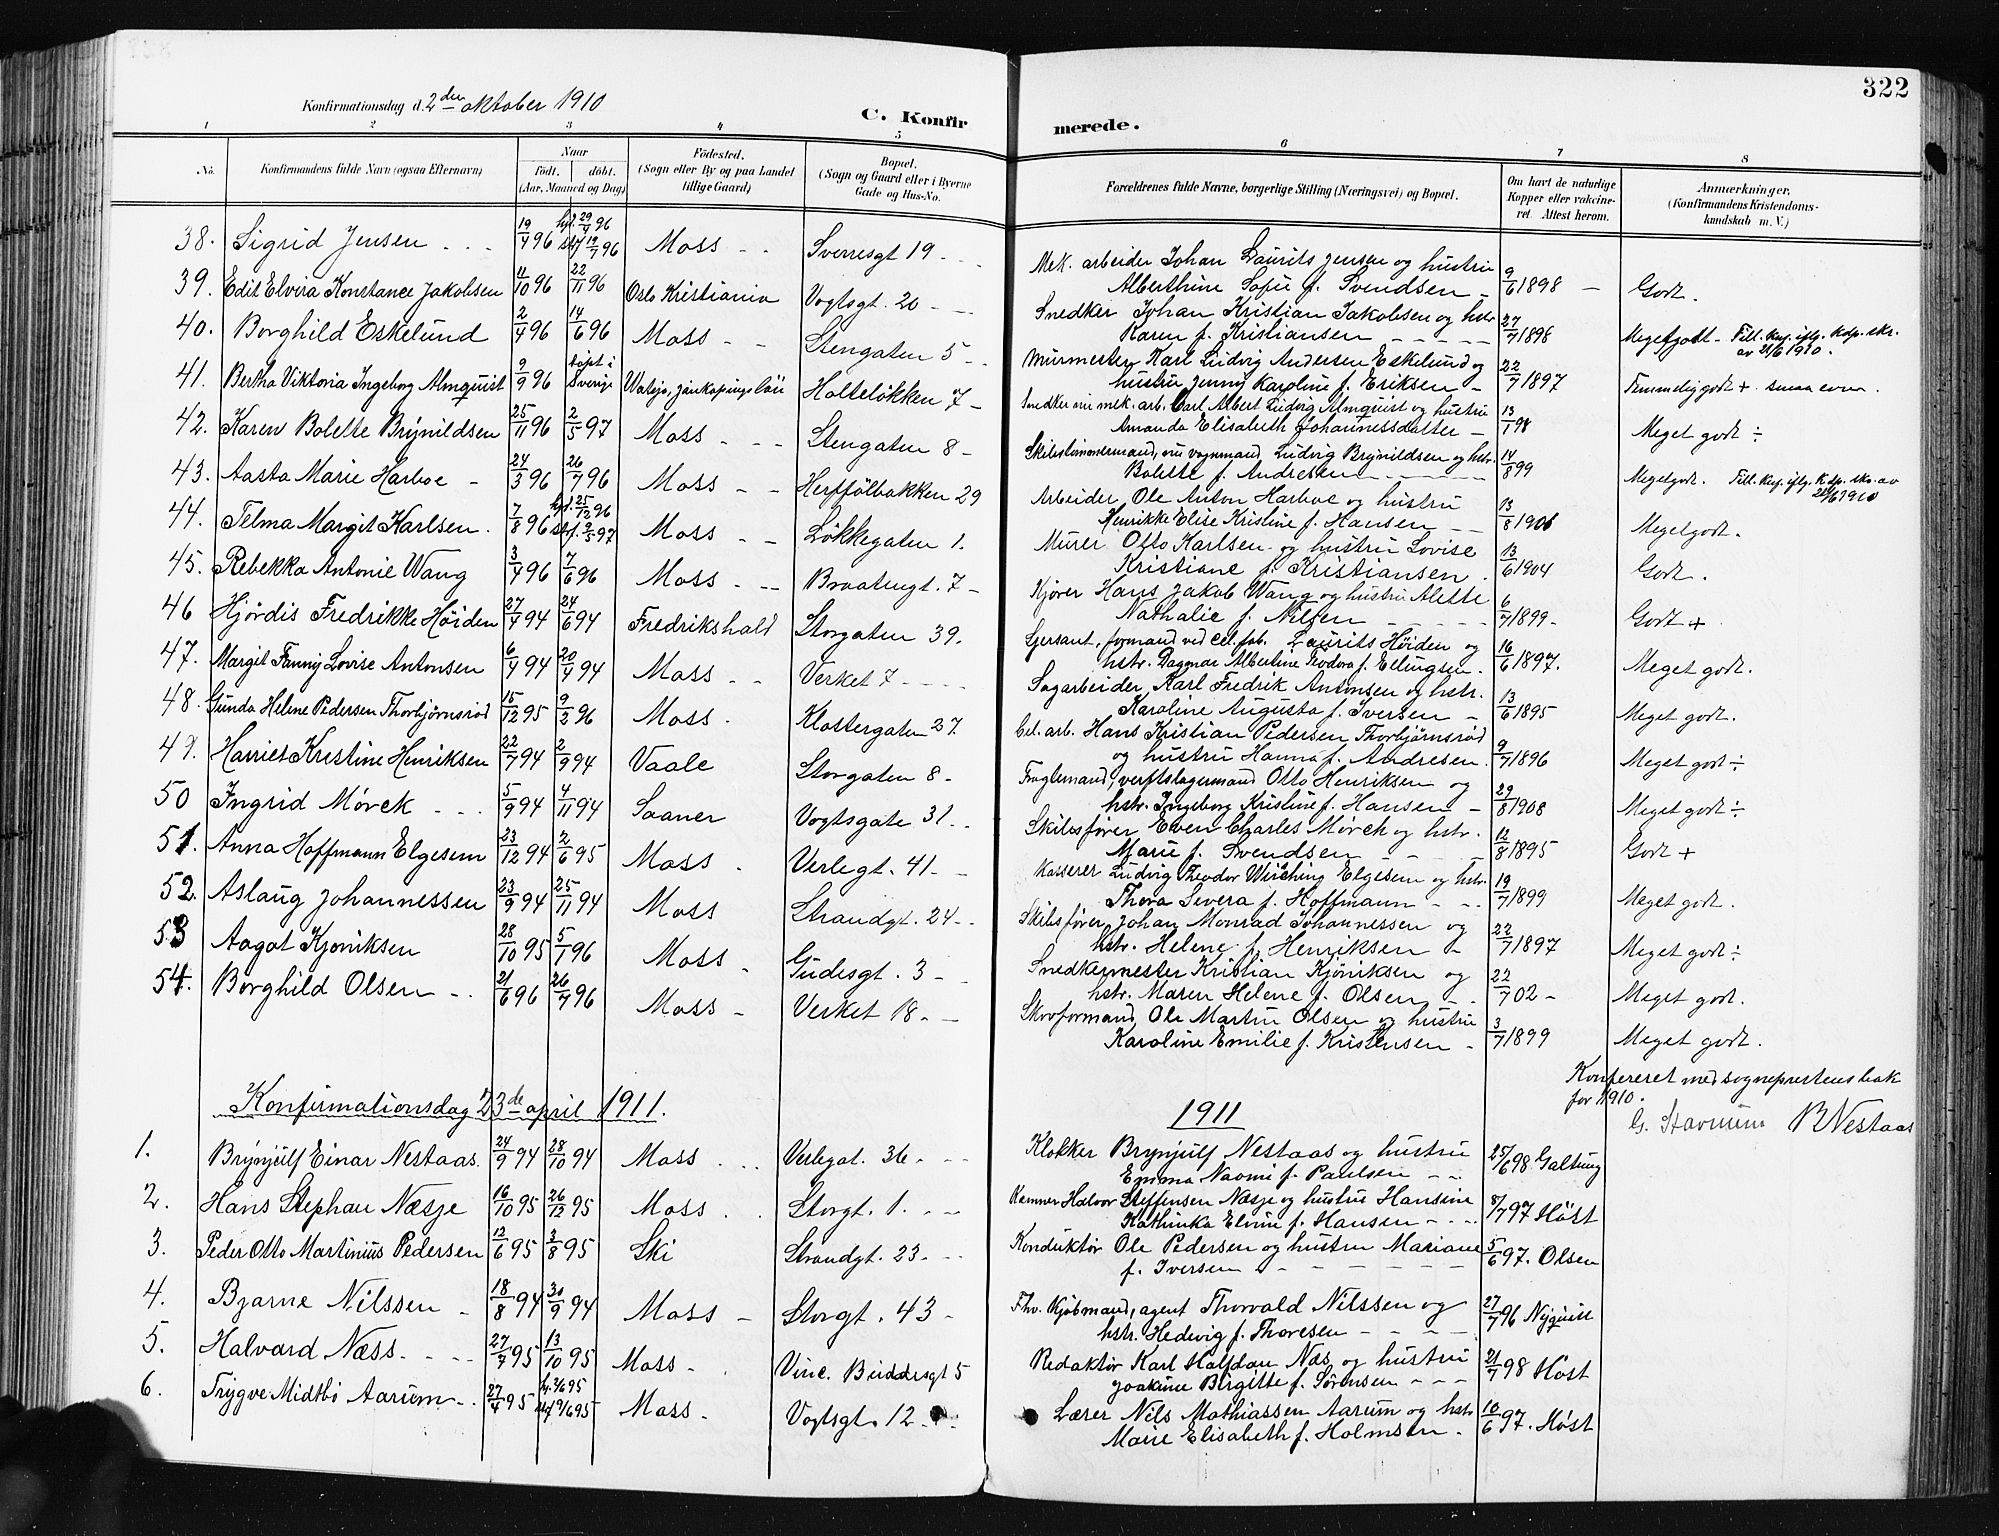 322
Konfirmationsdag d. 2den oktober 1910
C. Konfir merede.
1 2 3 4 5 6 7 8
No. Konfirmandens fulde Navn (ogsaa Efternavn) Naar födt. döbt. (Aar, Maaned og Dag) Födested. (Sogn eller By og paa Landet tillige Gaard) Bopæl. (Sogn og Gaard eller i Byerne Gade og Hus-No. Forældrenes fulde Navne, borgerlige Stilling (Næringsvei) og Bopæl. Om havt de naturlige Kopper eller vakcineret Attest herom. Anmærkninger. (Konfirmandens Kristendomskundskab m. V.)
38. Sigrid Jensen 19/4 96 hjd. 29/4 96 stf. 19/7 96 Moss Sverresgt 19 Mek. arbeider Johan Laurits Jensen og hustru
Alberthine Sofie f. Svendsen 9/6 1898 Godt.
39. Edit Elvira Konstance Jakobsen 11/10 96 22/11 96 Oslo Kristiania Vogtsgt. 20 Snedker Johan Kristian Jakobsen og hstr
Karen f. Kristiansen 27/7 1898 Megetgodt - Till. Kgf. iflg. Kdp. skr. av 21/6 1910.
40. Borghild Eskelund 2/4 96 14/6 96 Moss Stengaten 5 Murmester Karl Ludvig Andersen Eskelund og
hustru Jenny Karoline f. Eriksen 22/7 1897 Temmelig godt + smaa evner.
41. Bertha Viktoria Ingeborg Almquist 9/9 96 døpt i Sverige Vatsjø, Jønkøpingslän Holteløkken 7 Snedker nu mek. arb. Carl Albert Ludvig Almquist og hustru
Amanda Elisabeth Johannessdatter 13/1 98 Meget godt ÷
42. Karen Bolette Brynildsen 25/11 96 2/5 97 Moss Stengaten 8 Skilistionermand, nu vognmand Ludvig Brynildsen og hstr.
Bolette f. Andresen 14/8 99 Megetgodt. Till. Kgf. iflg. Kdp. skr. av 21/6 1910
43. Aasta Marie Harboe 24/3 96 26/7 96 Moss Herffølbakken 29 Arbeider Ole Anton Harboe og hustru
Henrikke Elise Kristine f. Hansen 13/8 1906 Megetgodt.
44. Telma Margit Karlsen. 7/8 96 hjd. 25/12 96 stf. 2/5 97 Moss Løkkegaten 1. Murer Otto Karlsen og hustru Lovise
Kristiane f. Kristiansen 13/6 1904 Godt.
45. Rebekka Antonie Wang 3/4 96 7/6 96 Moss Braatengt. 7 Kjører Hans Jakob Wang og hustru Alette
Nathalie f. Nilsen 6/7 1899 Godt +
46 Hjördis Fredrikke Höiden 27/4 94 24/6 94 Fredrikshald Storgaten 39. Sjersant, formand ved Cel. fab. Laurits Höiden og
hstr. Dagmar Albertine Teodora f. Ellingsen 16/6 1897. Meget godt.
47. Margit Fanny Lovise Antonsen 6/4 94 20/4 94 Moss Verket 7 Sagarbeider Karl Fredrik Antonsen og hstr.
Karoline Augusta f. Iversen 13/6 1895 Meget godt.
48. Gunda Helene Pedersen Thorbjørnsrød 15/12 95 9/2 96 Moss. Klostergaten 27. Cel. arb. Hans Kristian Pedersen Thorbjørnsrød
og hustru Hanna f. Andresen 9/7 1896 Meget godt ÷
49. Harriet Kristine Henriksen 22/7 94 2/9 94 Vaale Storgaten 8 Fraglemand, verftslagermand Otto Henriksen og
hstr. Ingeborg Kristine f. Hansen 29/8 1908 Meget godt ÷
50 Ingrid Mörck 5/9 94 4/11 94 Saaner Vogtsgate 31 Skibsfører Even Charles Mørch og hstr.
Marie f. Svendsen 12/8 1895 Godt +
51. Anna Hoffmann Elgesem 23/12 94 2/6 95 Moss Verlegt. 41 Kasserer Ludvig Theodor Wirsching Elgesem og hstr.
Thora Severa f. Hoffmann 19/7 1899 Meget godt.
52. Aslaug Johannessen 23/9 94 25/11 94 Moss Strandgt. 24 Skibsfører Johan Monrad Johannessen og
hstr. Helene f. Henriksen 22/7 1897 Meget godt ÷
53 Aagot Kjöniksen 28/10 95 5/1 96 Moss Gudesgt. 3 Snedkermester Kristian Kjöniksen og
hstr. Maren Helene f. Olsen 22/7 02 Meget godt.
54. Borghild Olsen 21/6 96 26/7 96 Moss Verket 18. Skovformand Ole Martin Olsen og hustru
Karoline Emilie f. Kristensen 3/7 1899 Meget godt.
Konfereret med sogneprestens bok
for 1910.
G. Stavnum B Nestaas
Konfirmationsdag 23de april 1911.
1911
1. Brynjulf Einar Nestaas. 24/9 94 28/10 94 Moss Verlegt. 36 Klokker Brynjulf Nestaas og hustru
Emma Naomi f. Paulsen 25/6 98 Galtung
2. Hans Stephan Næsje 16/10 95 26/12 95 Moss Storgt. 1. Kemner Halvor Steffensen Næsje og hustru Hansine
Kathinka Elvine f. Hansen 8/7 97 Høst
3. Peder Otto Martinius Pedersen 12/6 95 3/8 95 Ski Strandgt. 23 Konduktør Ole Pedersen og hustru Mariane
f. Iversen 5/6 97. Olsen
4. Bjarne Nilssen 18/8 94 30/9 94 Moss Storgt. 43 Fhv. Kjøbmand, agent Thorvald Nilssen og
hstr. Hedevig f. Thoresen 27/7 96 Nyquist
5. Halvard Næss. 27/7 95 13/10 95 Moss Vinc. Buddesgt 5 Redaktør Karl Halfdan Næs og hustru
Joakine Birgitte f. Sørensen 21/7 98 Høst
6. Trygve Midtbö Aarum 27/4 95 hj. 2/6 95 stf. 9/6 95 Moss Vogtsgt. 12 Lærer Nils Mathiassen Aarum og hstr
Marie Elisabeth f. Holmsen 10/6 97. Høst